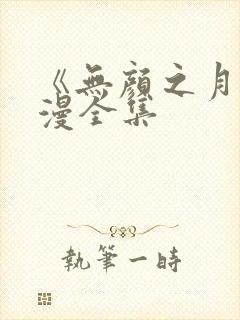 《無顏之月
漫全集
執筆一時